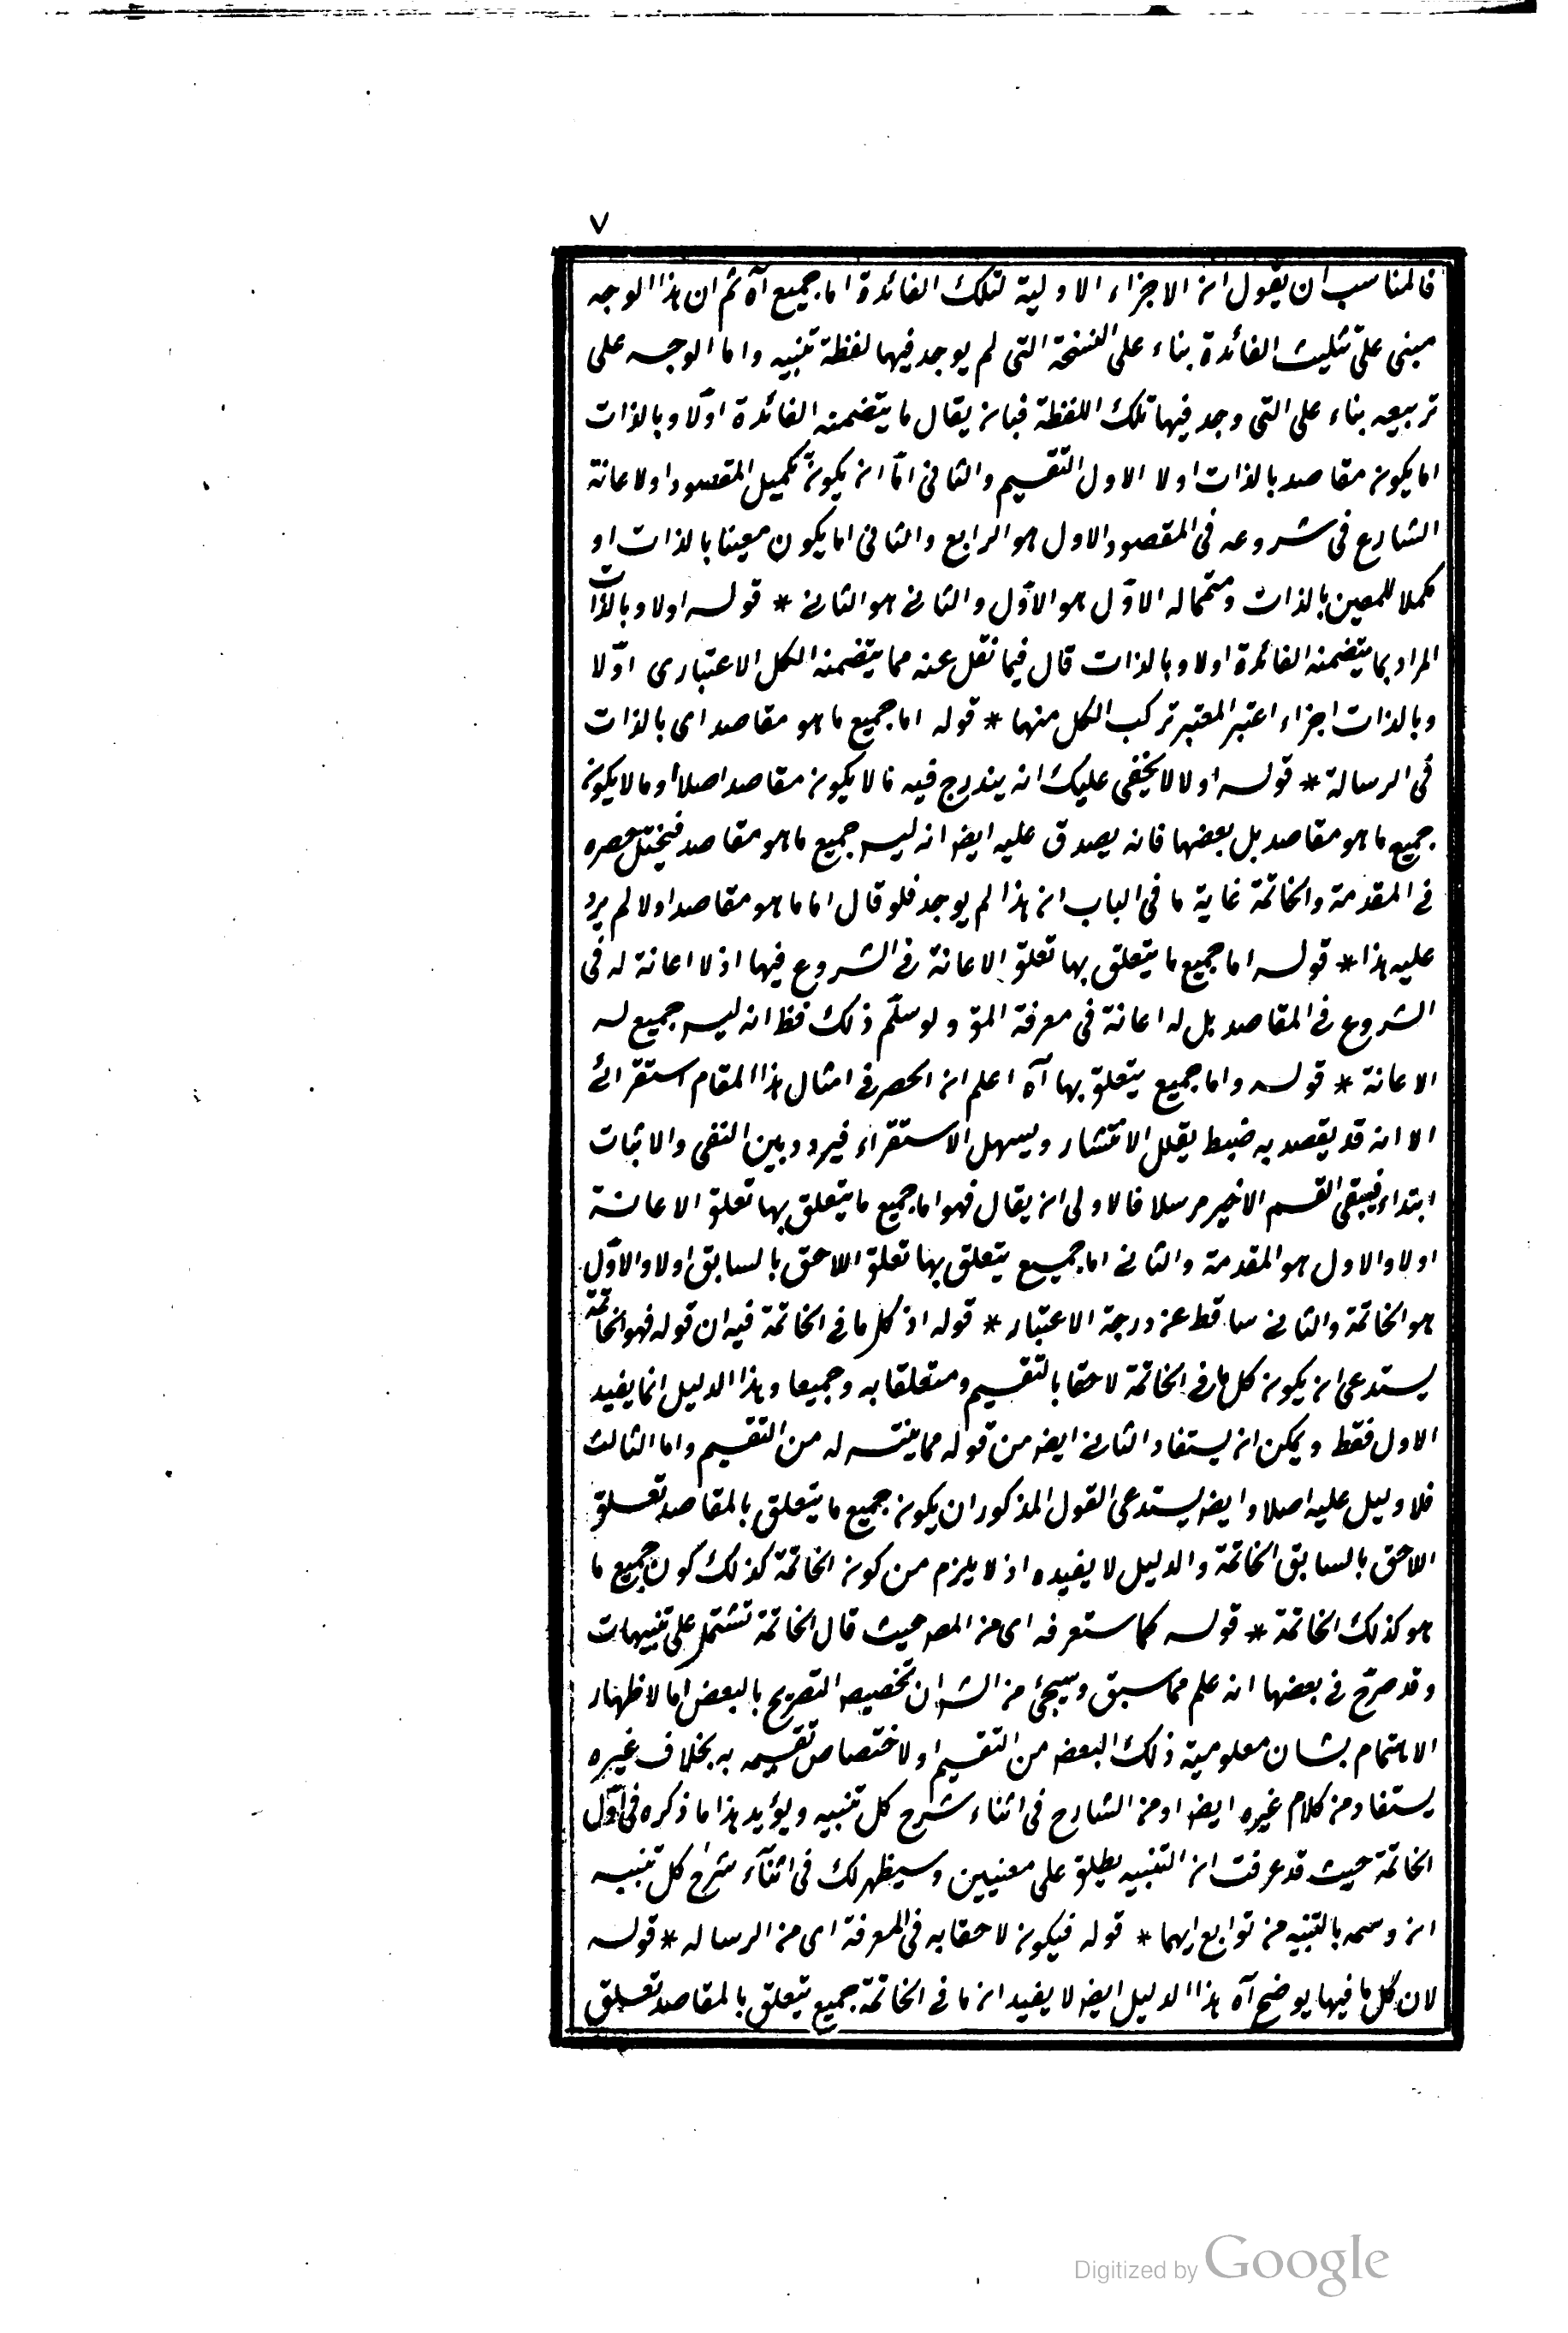 ٧
فالمناسب ان يقول ان الاجزاء الاولية لتلك الفائدة اما جميع آه ثم ان هذا الوجه
مبنى على تثليث الفائدة بناء على النسخة التى لم يوجد فيها لفظة تنبيه واما الوجه على
تربيعه بناء على التى وجد فيها تلك اللفظة فبان يقال ما يتضمنه الفائدة اوّلا وبالذات
اما يكون مقاصد بالذات اولا الاول التقسيم والثانى امّا ان يكون تكميل المقصود اولاعانة
الشارع فى شروعه فى المقصود الاول هو الرابع والثانى اما يكون معينا بالذات او
مكملا للمعين بالذات ومتمما له الاوّل هو الاوّل والثانى هو الثانى * قوله اولا وبالذات
المراد بما يتضمنه الفائدة اولا وبالذات قال فيما نقل عنه مما يتضمنه الكل الاعتبارى اوّلا
وبالذات اجزاء اعتبر المعتبر تركب الكل منها * قوله اما جميع ما هو مقاصد اى بالذات
فى الرسالة * قوله اولا لا يخفى عليك انه يندرج فيه ما لا يكون مقاصد اصلا وما لا يكون
جميع ما هو مقاصد بل بعضها فانه يصدق عليه ايضا انه ليس جميع ما هو مقاصد فيختل حصره
فى المقدمة والخاتمة غاية ما فى الباب ان هذا لم يوجد فلو قال اما ما هو مقاصد اولا لم يرد
عليه هذا * قوله اما جميع ما يتعلق بها تعلق الاعانة فى الشروع فيها اذ لا اعانة له فى
الشروع فى المقاصد بل له اعانة فى معرفة المؤ ولو سلّم ذلك فظ انه ليس جميع له
الاعانة * قوله واما جميع يتعلق بها آه اعلم ان الحصر فى امثال هذا المقام استقرائى
الا انه قد يقصد به ضبط يقلل الانتشار ويسهل الاستقراء فيردد بين النفى والاثبات
ابتداء فيبقى القسم الاخير مرسلا فالاولى ان يقال فهو اما جميع ما يتعلق بها تعلق الاعانة
اولا والاول هو المقدمة والثانى اما جميع يتعلق بها تعلق اللاحق بالسابق اولا والاوّل
هو الخاتمة والثانى ساقط عن درجة الاعتبار * قوله اذ كل ما فى الخاتمة فيه ان قوله فهو الخاتمة
يستدعى ان يكون كل ما فى الخاتمة لاحقا بالتقسيم ومتعلقا به وجميعا وهذا الدليل انما يفيد
الاول فقط ويمكن ان يستفاد الثانى ايضا من قوله مما ينتسب له من التقسيم واما الثالث
فلا دليل عليه اصلا وايضا يستدعى القول المذكور ان يكون جميع ما يتعلق بالمقاصد تعلق
اللاحق بالسابق الخاتمة والدليل لا يفيده اذ لا يلزم من كون الخاتمة كذلك كون جميع ما
هو كذلك الخاتمة * قوله كما ستعرفه اى من المص حيث قال الخاتمة تشتمل على تنبيهات
وقد صرّح فى بعضها انه علم مما سبق وسيجئ من الش ان تخصيص التصريح بالبعض اما لاظهار
الاهتمام بشان معلومية ذلك البعض من التقسيم اولا ختصاص تقسيمه به بخلاف غيره
يستفاد من كلام غيره ايضا او من الشارح فى اثناء شرح كل تنبيه ويؤيد هذا ما ذكره فى اوّل
الخاتمة حيث قد عرفت ان التنبيه يطلق على معنيين وسيظهر لك فى اثنآء شرح كل تنبيه
ان وسمه بالتنبيه من توابع ايهما * قوله فيكون لاحقا به فى المعرفة اى من الرساله * قوله
لان كل ما فيها يوضح آه هذا الدليل ايضا لا يفيد ان ما فى الخاتمة جميع يتعلق بالمقاصد تعلق
Digitized by Google